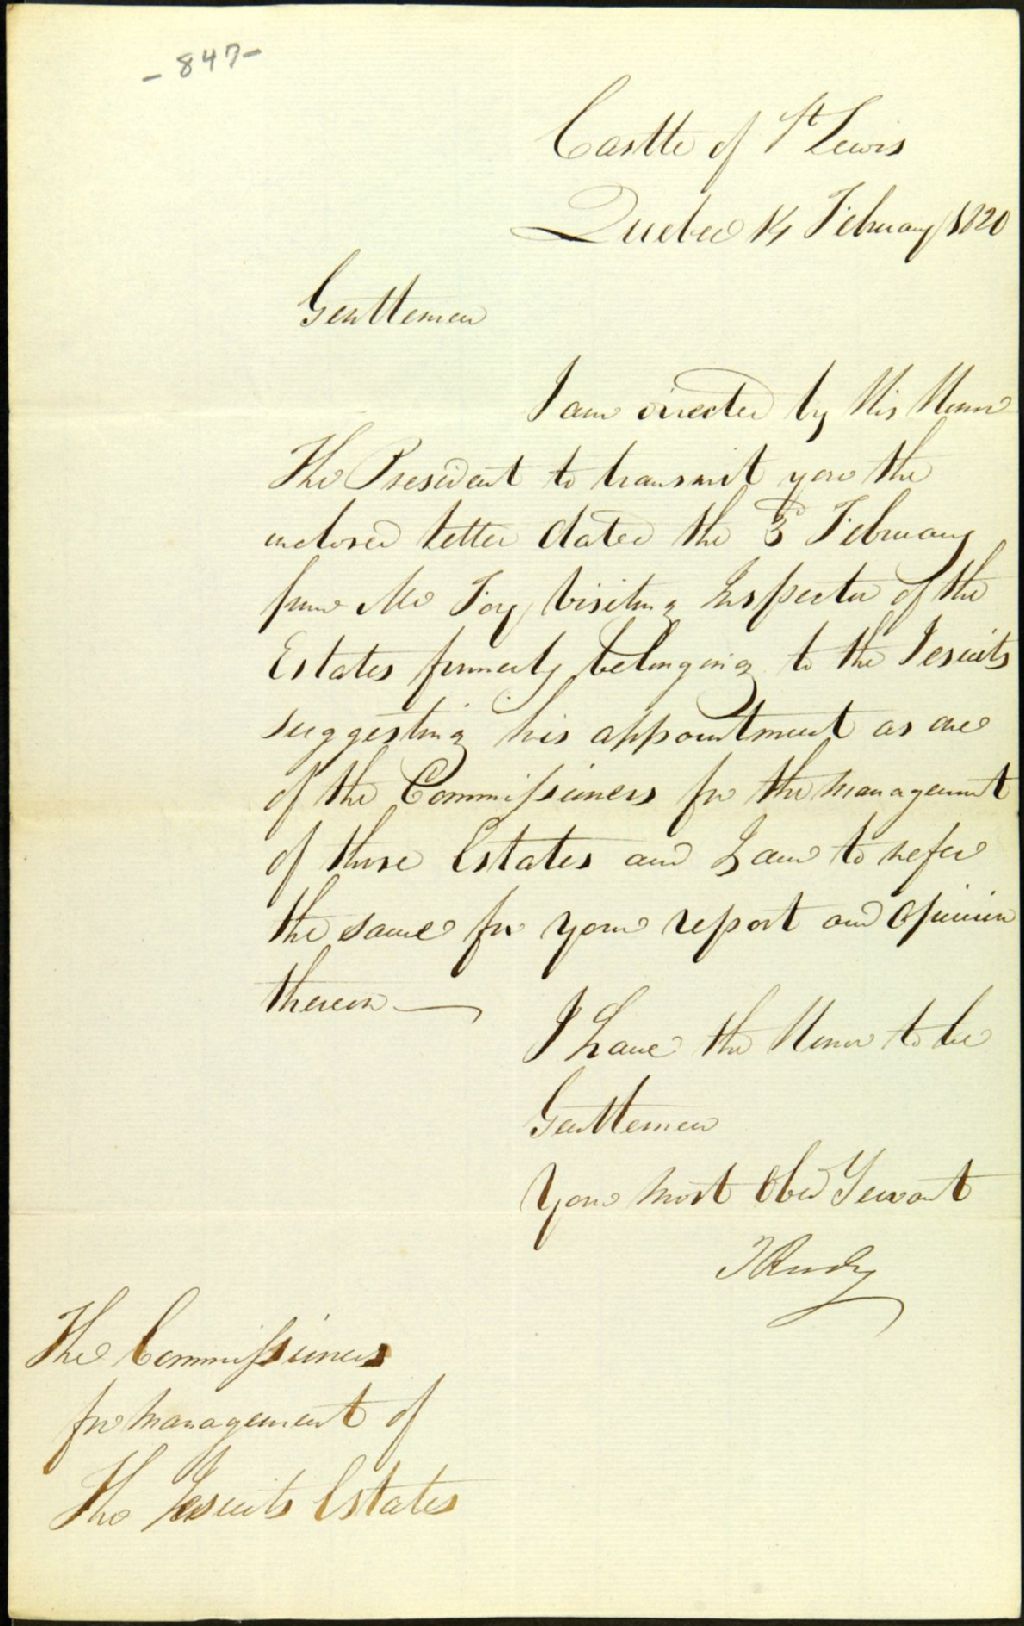 - 847 -
Castle of St Lewis
Quebec 14 February 1820
Gentlemen
I am directed by His Honor
The President to transmit you the
inclosed letter dated the 3d February
from Mr Foy, Visiting Inspector of the
Estates formerly belonging to the Jesuits
suggesting his appointment as one
of the Commissioners for the management
of those Estates and I am to refer
the same for your report and Opinion
thereon —
I have the Honor to be
Gentlemen
Your most Obed Servant
The Commissioners
for management of
The Jesuits Estates